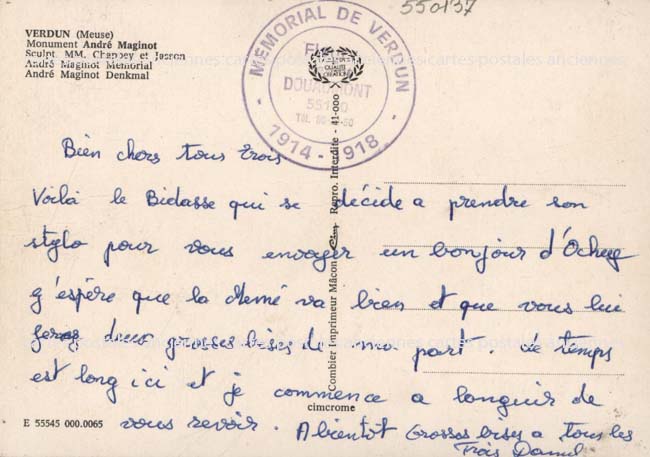 550137
VERDUN (Meuse)
Monument André Maginot
Sculpt. MM. Chappey et Josson
André Maginot Memorial
André Maginot Denkmal
MEMORIAL DE VERDUN
FLEURY
DOUAUMONT
1914-1918
Combier Imprimeur Mâcon Cim Repro. Interdite - 41-000
Bien chers tous trois
Voilà le Bidasse qui se décide a prendre son
stylo pour vous envoyer un bonjour d'Ochey
J'espère que la Memé va bien et que vous lui
ferez deux grosses bises de ma part. Le temps
est long ici et je commence a languir de
vous revoir. A bientot Grosses bises a tous les
Trois Daniel
cimcrome
E 55545 000.0065